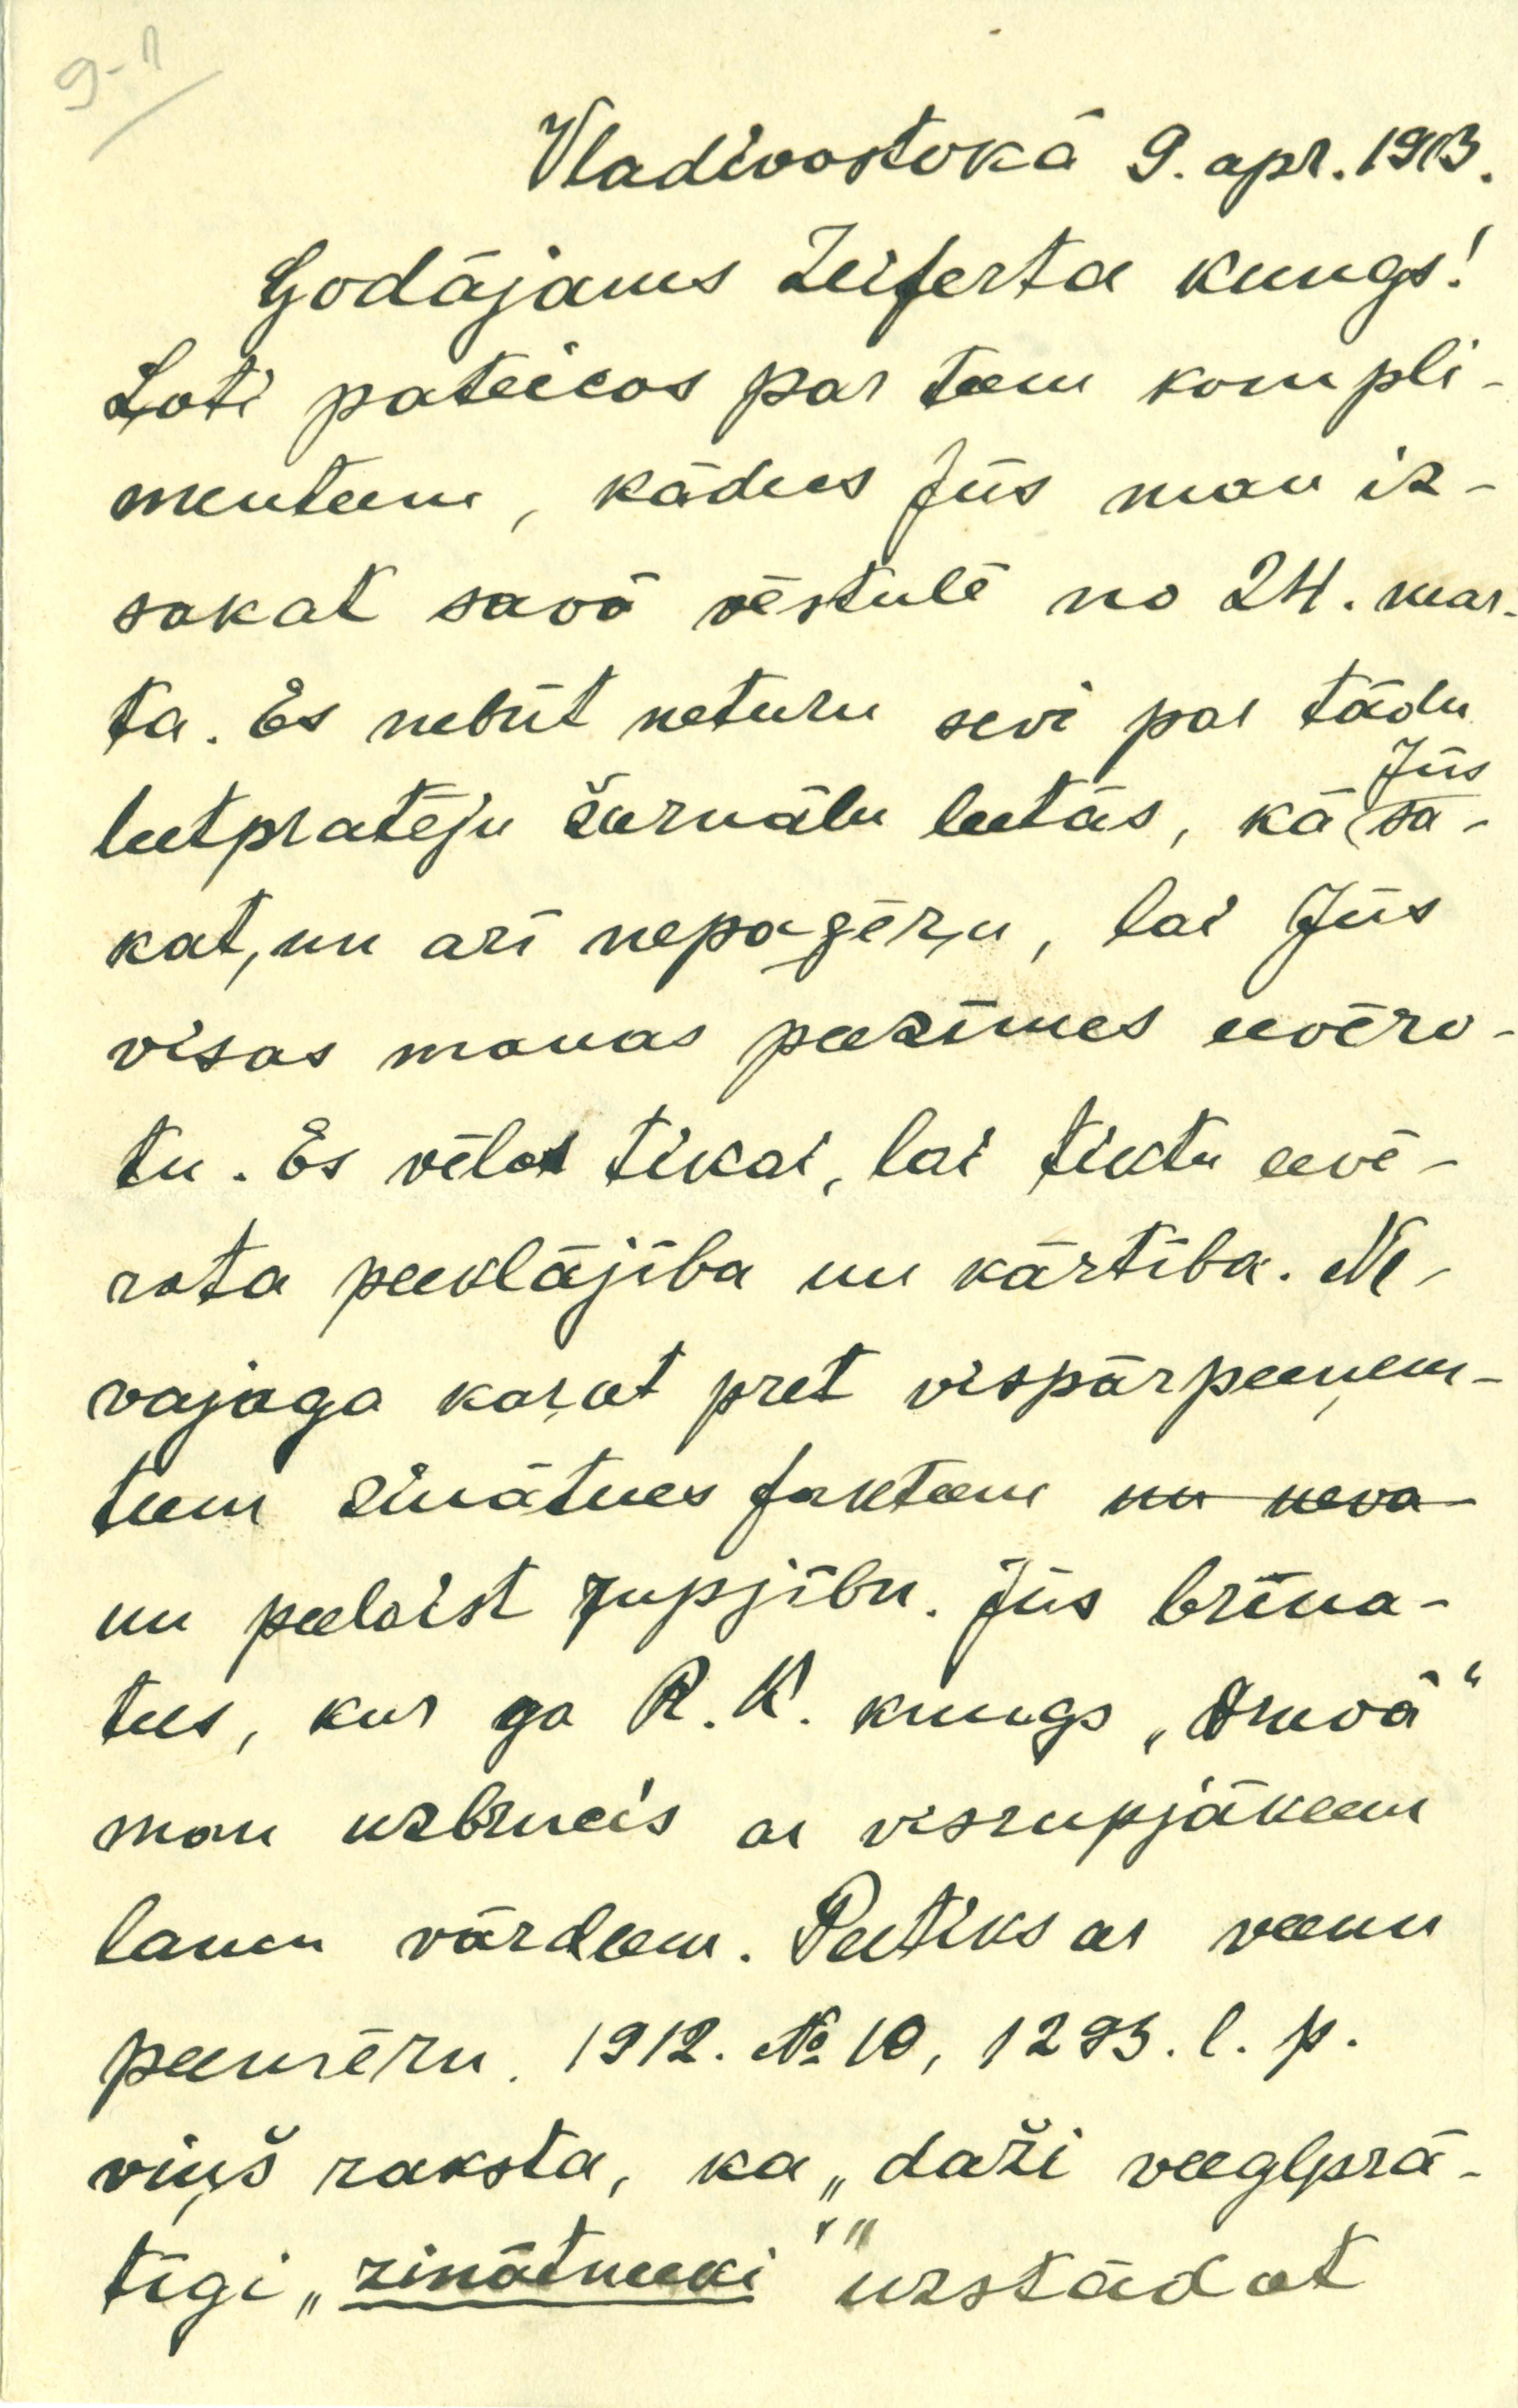 9-1
Vladivostokā 9. apr. 1913.
Godājams Zeiferta kungs!
Ļoti pateicos par teem kompli-
menteem, kādus Jūs man iz-
sakat savā vēstulē no 24. mar-
ta. Es nebūt neturu sevi par tādu
leetpratēju žurnālu leetās, kā Jūs sa-
kat, un arī nepaģēru, lai Jūs
visas manas peezīmes eevēro-
tu. Es vēlos tikai, lai tiktu eevē-
rota peeklājība un kārtība. Ne-
vajaga karot pret vispārpeeņem-
teem zinātnes fakteem un neva-
un peelaist rupjību. Jūs brīna-
tees, kur ga R. K. kungs „Druvā“
man uzbrucis ar visrupjākeem
lamu vārdeem. Peetiks ar veenu
peemēru. 1912. № 10, 1293. l. p.
viņš raksta, ka „daži veeglprā-
tīgi „zinātneeki“ uzstādot